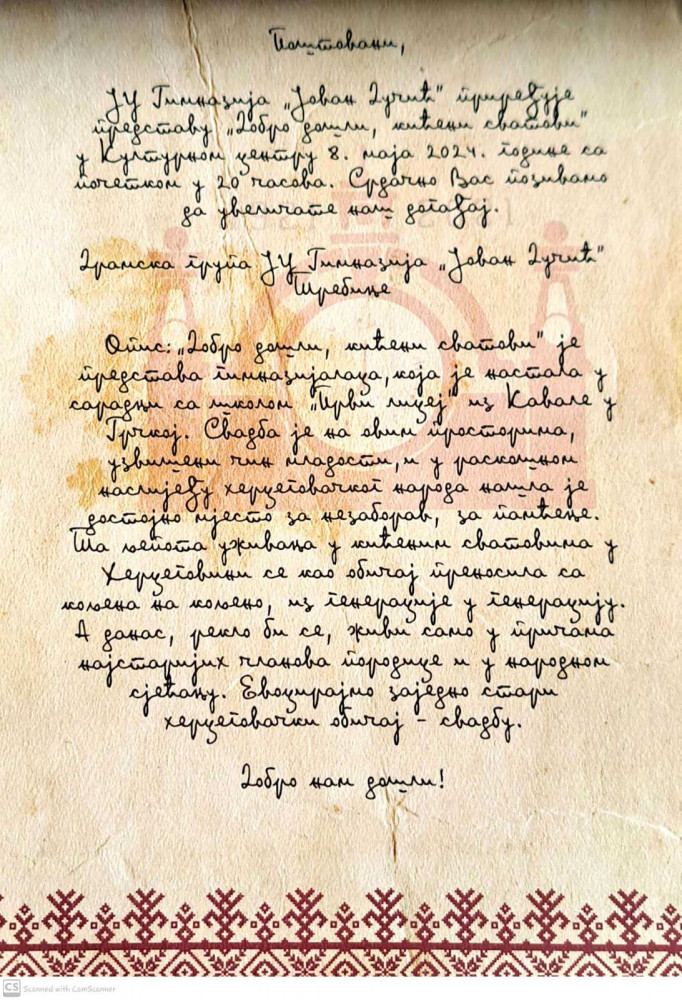 Поштовани,
ЈУ Гимназија „Јован Дучић" приређује
представу „Добро дошли, кићени сватови"
у Културном центру 8. маја 2024. године са
почетком у 20 часова. Срдачно Вас позивамо
да увеличате наш догађај.
Драмска група ЈУ Гимназија „Јован Дучић"
Требиње
Опис: „Добро дошли, кићени сватови" је
представа гимназијалаца, која је настала у
сарадњи са школом „Први лицеј" из Кавале у
Грчкој. Свадба је на овим просторима,
узвишени чин младости, и у раскошном
наслијеђу херцеговачког народа нашла је
достојно мјесто за незаборав, за памћење.
Та љепота уживања у кићеним сватовима у
Херцеговини се као обичај преносила са
кољена на кољено, из генерације у генерацију.
А данас, рекло би се, живи само у причама
најстаријих чланова породице и у народном
сјећању. Евоцирајмо заједно стари
херцеговачки обичај - свадбу.
Добро нам дошли!
CS Scanned with CamScanner